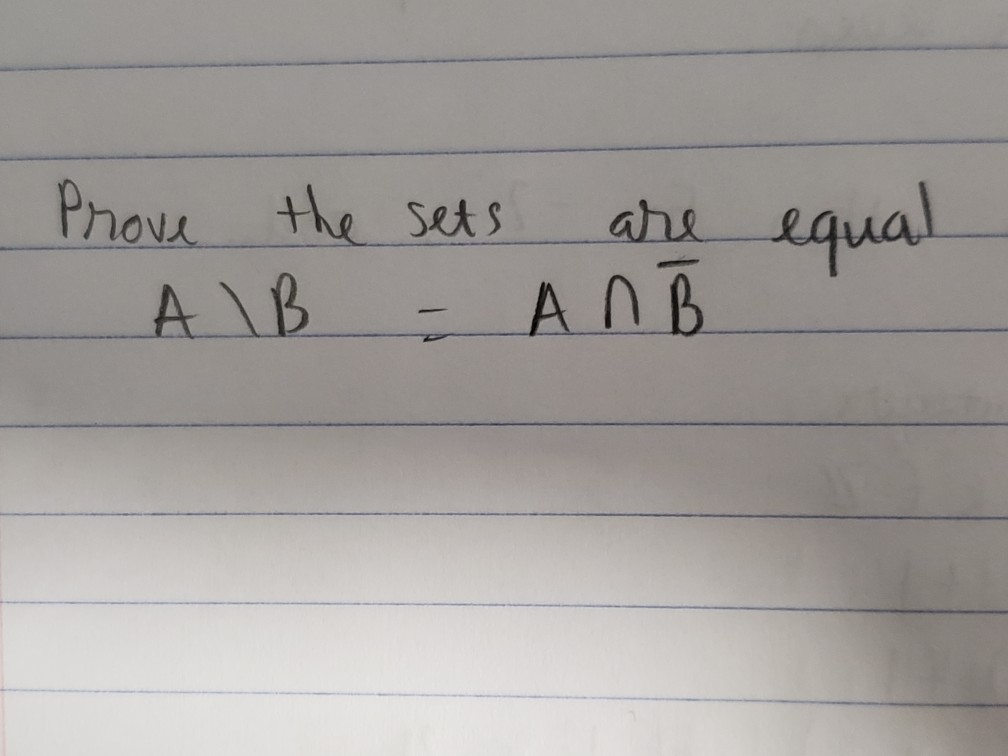 Prove the sets are equal
A \ B = A ∩ B̅